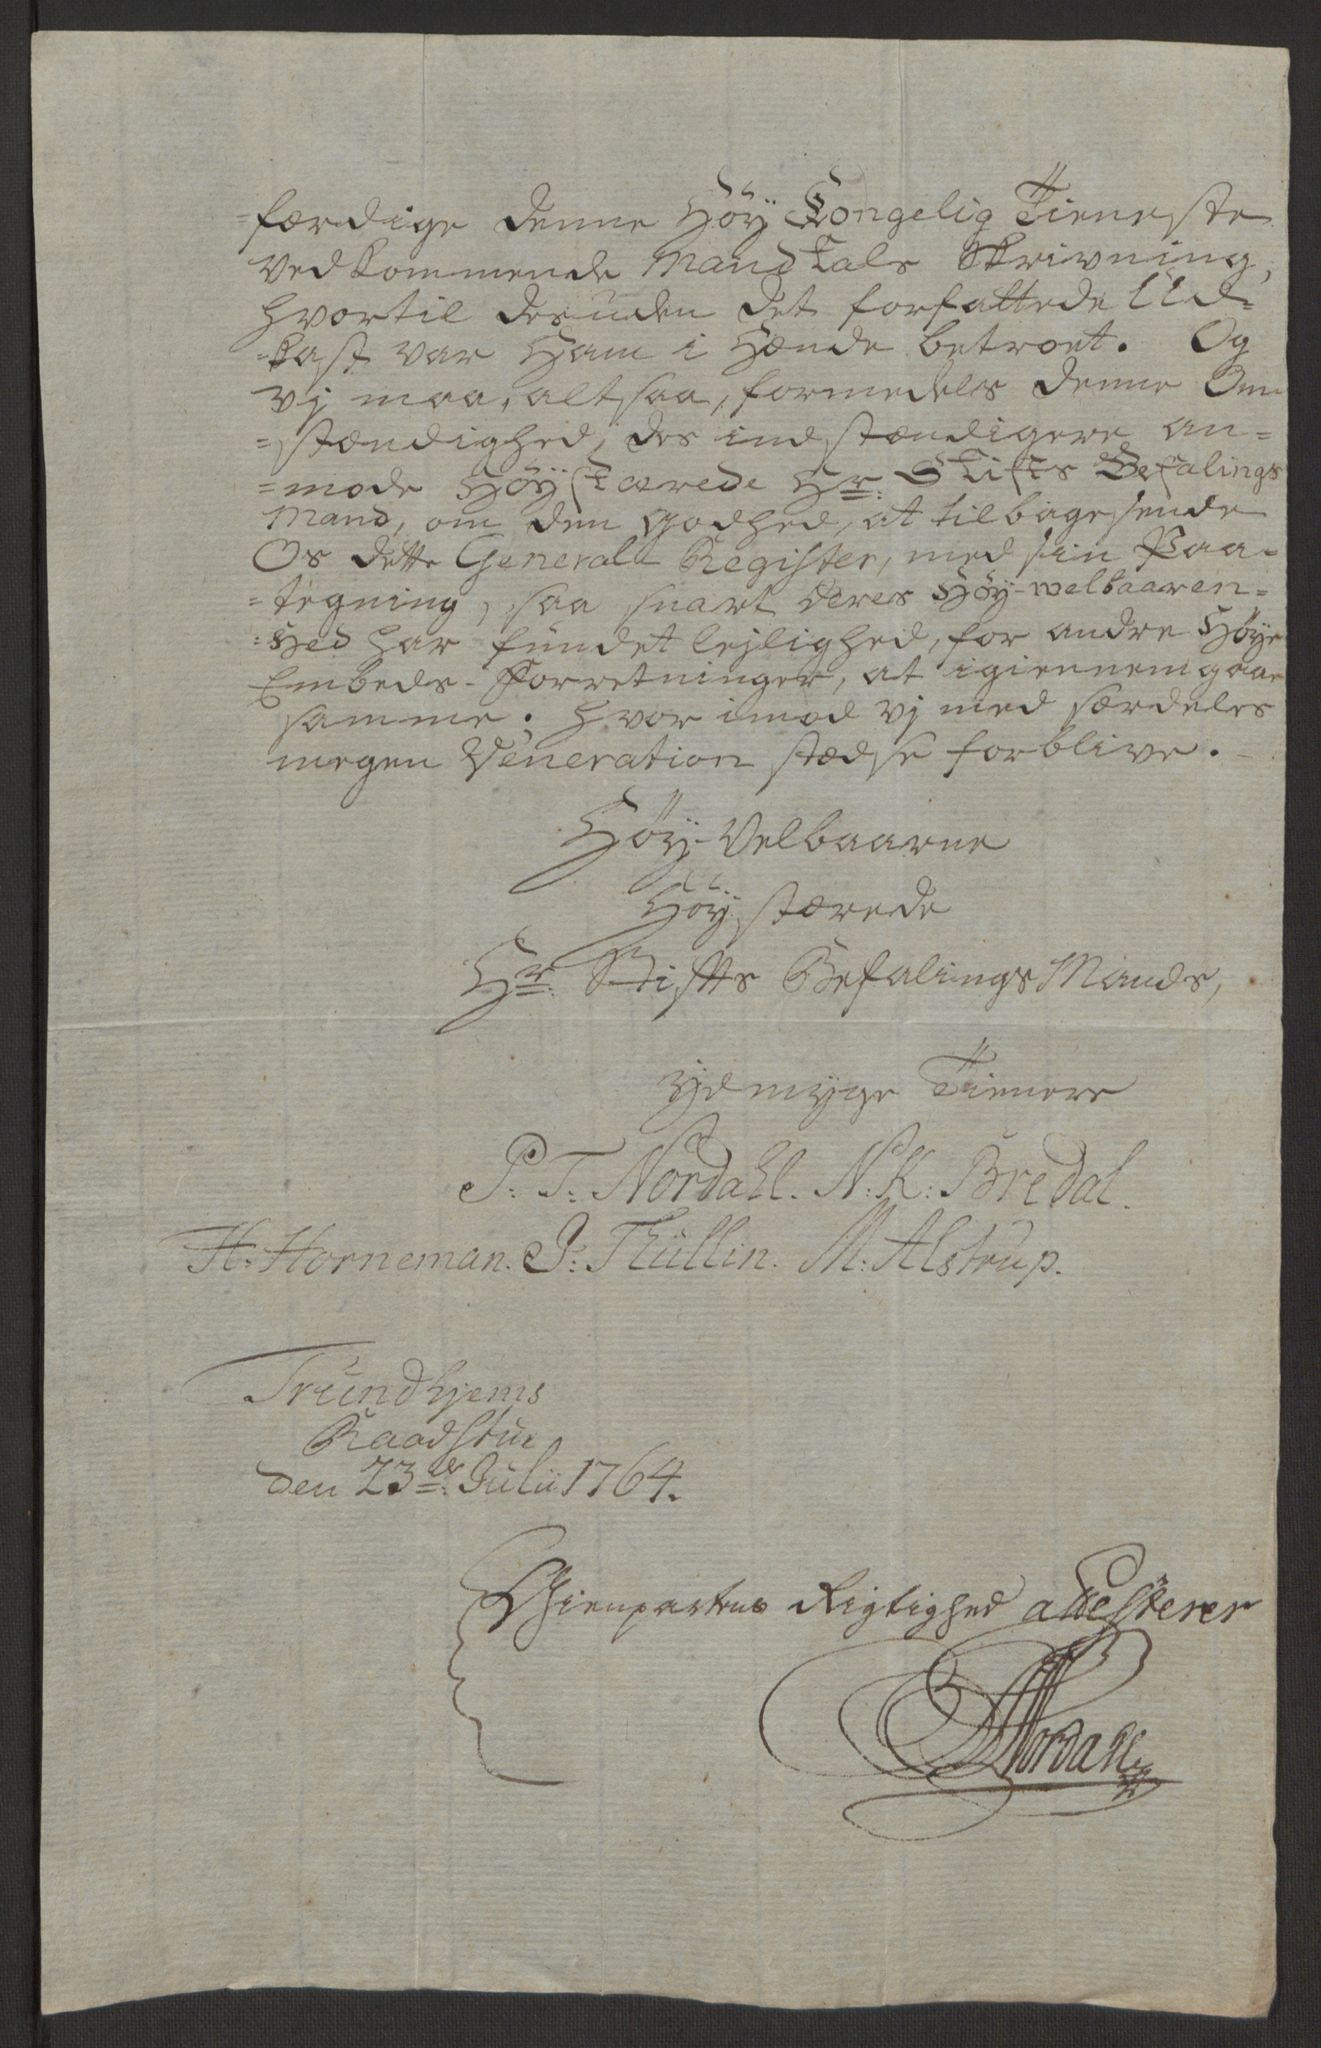 =færdige denne Høÿ Kongelig Tieneste
vedkommende Mandtals Skrivning,
hvortil desuden det forfattede Ud=
=kast var Ham i Hænde betroet. Og
vj maa, altsaa, formedels denne Om
=stændighed, des indstændigere an=
=mode Høÿstærede Hr: Stifts Befalings
Mand, om den Godhed, at tilbagesende
Os dette General Register, med sin Paa=
=tegning, saa snart deres Høÿ-welbaaren=
=Hed har fundet lejlighed, for andre Høÿe
Embeds-Forretninger, at igiennemgaae
samme. hvorimod vj med særdeles
megen Veneration stædse forblive.
Høÿ-Velbaarne
Høÿstærede
Hr: Stifts Befalings Mands,
ÿdmÿge Tienere
P: T: Nordahl. N: K: Bredal.
H: Horneman. J: Thüllin. M: Alstrup.
Trundhjems
Raadstue
den 23de: Julii 1764.
Gienpartens Rigtighed attesterer
Nordahl